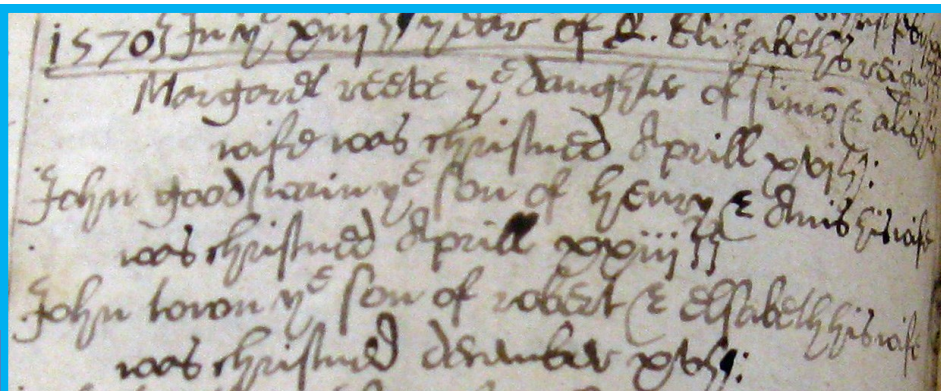 1570 In yͤ xiijth year of Q. Elizabeths reign
Margaret reete yͤ daughter of simō & alis his
wife was christned Aprill xvijth:
John goodswain yͤ son of henry & Anis his wife
was christned Aprill xxiijth
John town yͤ son of robert & elsabeth his wife
was christned december xvth: